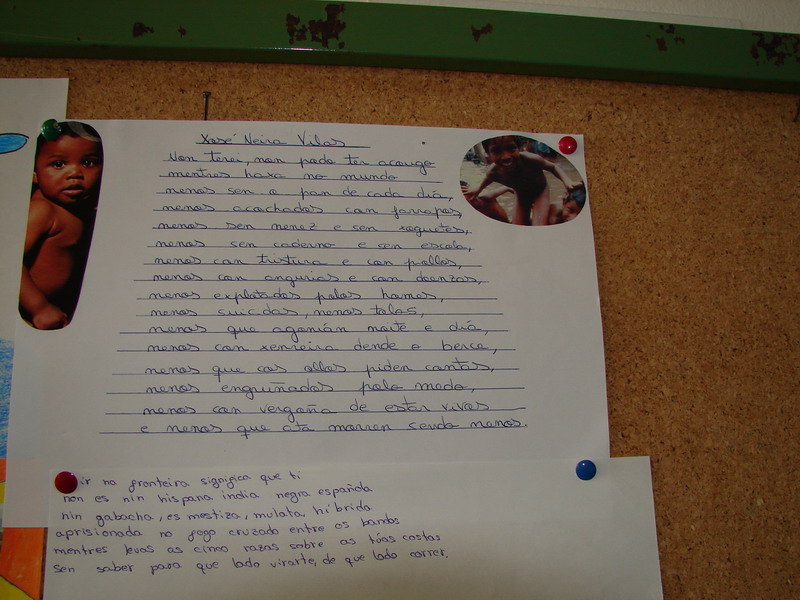 Xosé Neira Vilas
Non terei, non podo ter acougo
mentras haxa no mundo
nenos sen o pan de cada día,
nenos acochados con farrapos,
nenos sen nenez e sen xoguetes,
nenos sen caderno e sen escola,
nenos con tristura e con piollos,
nenos con angurias e con doenzas,
nenos explotados polos homes,
nenos suicidas, nenos tolos,
nenos que agonían noite e día,
nenos con xenreira dende o berce,
nenos que cos ollos piden contas,
nenos engruñados polo medo,
nenos con vergoña de estar vivos
e nenos que ata morren sendo nenos.
ir na fronteira significa que ti
non es nin hispana india negra española
nin gabacha, es mestiza, mulata, híbrida
aprisionada no fogo cruzado entre os bandos
mentres levas as cinco razas sobre as túas costas
sen saber para que lado virarte, de que lado correr.